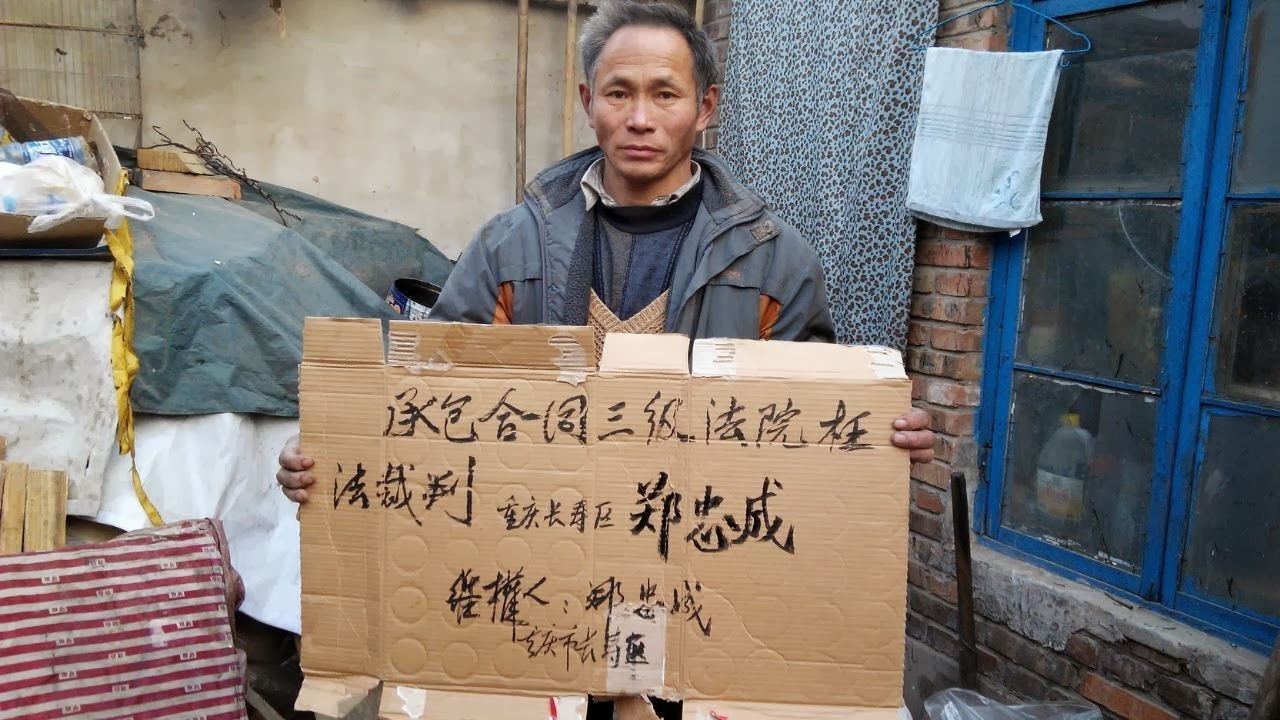 承包合同三级法院枉
法裁判 重庆长寿区 郑忠成
维權人：郑忠成
重庆市长寿区